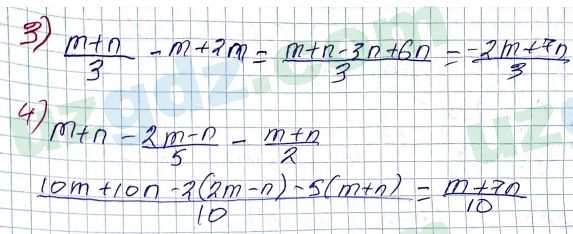 3) (m+n)/3 - m+2m = (m+n-3n+6n)/3 = (-2m+7n)/3
4) m+n - (2m-n)/5 - (m+n)/2
(10m+10n-2(2m-n)-5(m+n))/10 = (m+7n)/10